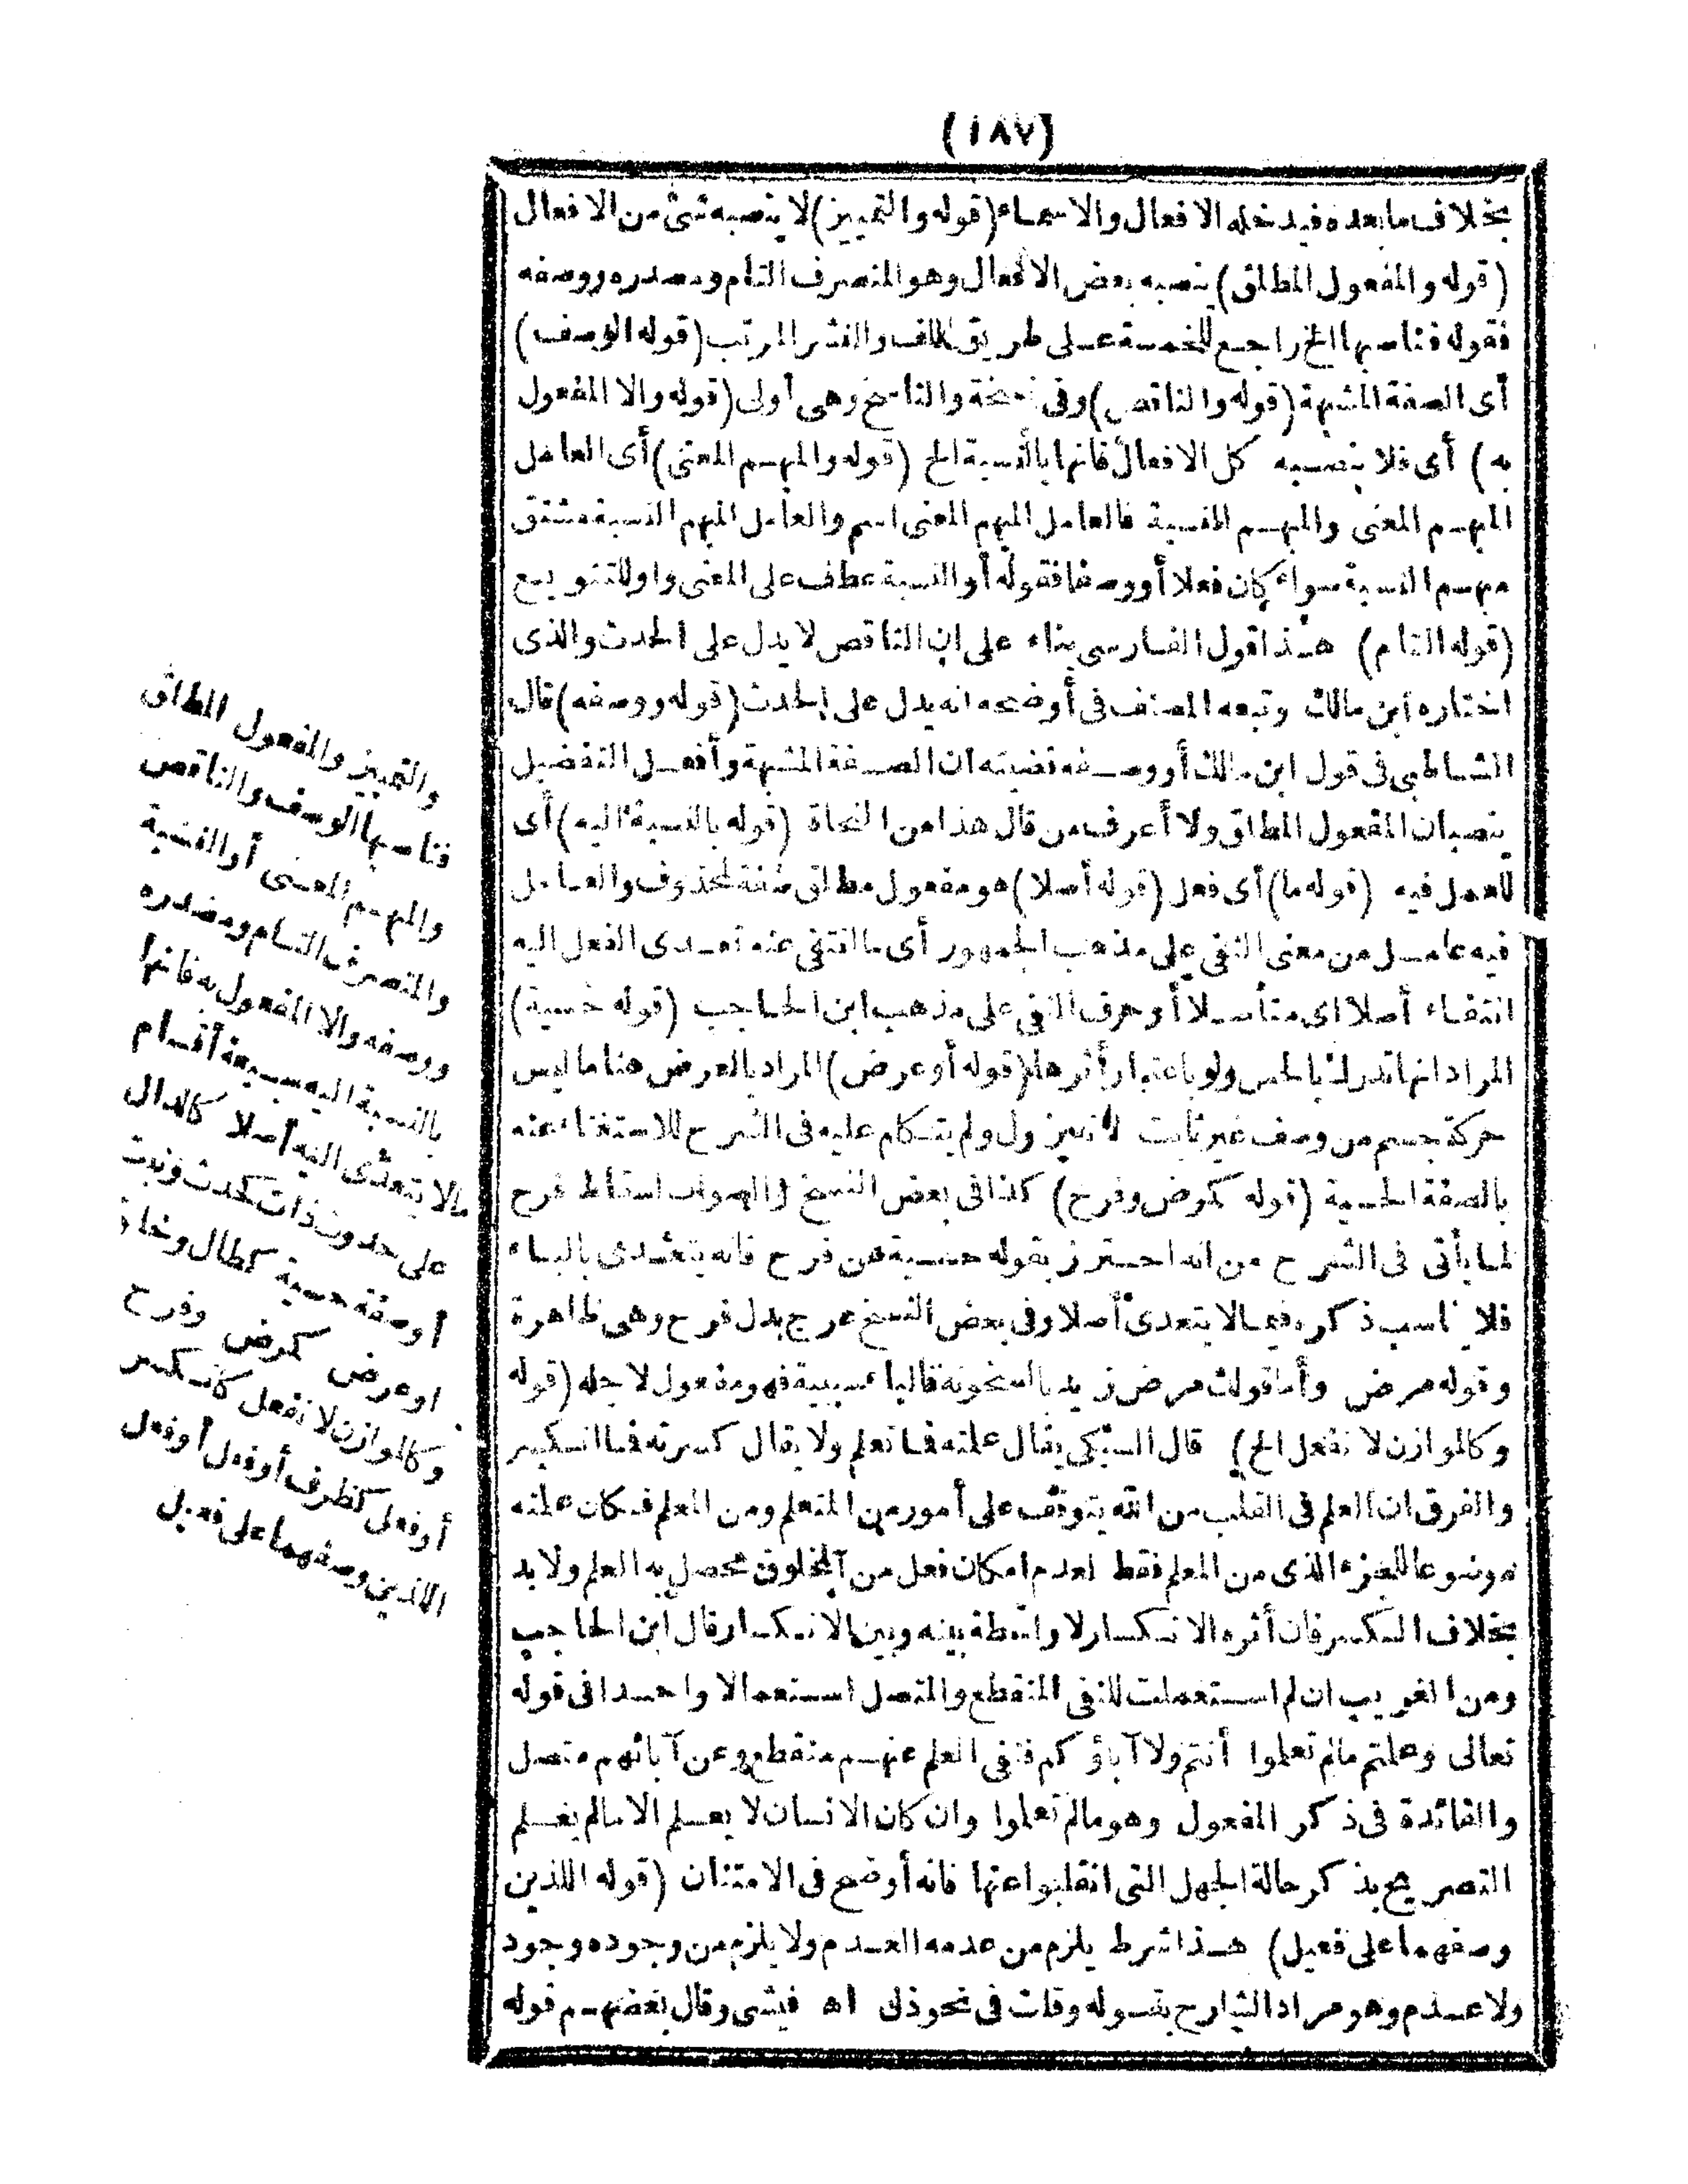 (١٨٧)
بخلاف ما بعده فيدخله الافعال والاسماء (قوله والتمييز) لا ينصبه شئ من الافعال
(قوله والمفعول المطلق) ينصبه بعض الافعال وهو المتصرف التام ومصدره ووصفه
فقوله فناصبها الخ راجع للخمسة على طريق اللف والنشر المرتب (قوله الوصف)
أى الصفة المشبهة (قوله والناقص) وفى نسخة والناسخ وهى أولى (قوله والا المفعول
به) أى فلا ينصبه كل الافعال فانها بالنسبة الخ (قوله والمبهم المعنى) أى العامل
المبهم المعنى والمبهم النسبة فالعامل المبهم المعنى اسم والعامل المبهم النسبة مشتق
مبهم النسبة سواء كان فعلا أو وصفا فقوله أو النسبة عطف على المعنى واو للتنويع
(قوله التام) هذا قول الفارسى بناء على ان الناقص لا يدل على الحدث والذى
اختاره ابن مالك وتبعه المصنف فى أوضحه انه يدل على الحدث (قوله ووصفه) قال
الشاطبى فى قول ابن مالك أو وصف قضيته ان الصفة المشبهة وأفعل التفضيل
ينصبان المفعول المطلق ولا أعرف من قال هذا من النحاة (قوله بالنسبة اليه) أى
للعمل فيه (قوله ما) أى فعل (قوله أصلا) هو مفعول مطلق صفة لمحذوف والعامل
فيه عامل من معنى النفى على مذهب الجمهور أى ما انتفى عنه تعدى الفعل اليه
انتفاء أصلا اى متأصلا أو حرف النفى على مذهب ابن الحاجب (قوله حسية)
المراد انها تدرك بالحس ولو باعتبار أثرها (قوله أو عرض) المراد بالعرض هنا ما ليس
حركة جسم من وصف غير ثابت لانه يزول ولم يتكلم عليه فى الشرح للاستغناء عنه
بالصفة الحسية (قوله كمرض وفرح) كذا فى بعض النسخ والصواب اسقاط فرح
لما يأتى فى الشرح من انه احترز بقوله حسية عن فرح فانه يتعدى بالباء
فلا يناسب ذكره فيما لا يتعدى أصلا وفى بعض النسخ عرج بدل فرح وهى ظاهرة
وقوله مرض وأما قولك مرض زيد بالسخونة فالباء سببية فهو مفعول لاجله (قوله
وكالموازن لانفعل الخ) قال السبكى يقال علمته فما تعلم ولا يقال كسرته فما انكسر
والفرق ان العلم فى القلب من الله يتوقف على أمور من المتعلم ومن المعلم فكان علمته
موضوعا للجزء الذى من المعلم فقط لعدم امكان فعل من المخلوق يحصل به العلم ولا بد
بخلاف الكسر فان أثره الانكسار لا واسطة بينه وبين الانكسار قال ابن الحاجب
ومن الغريب ان لم استعملت للنفى المنقطع والمتصل استعمالا واحدا فى قوله
تعالى وعلمتم مالم تعلموا أنتم ولا آباؤكم فنفى العلم عنهم منقطع وعن آبائهم متصل
والفائدة فى ذكر المفعول وهو مالم تعلموا وان كان الانسان لا يعلم الا مالم يعلم
التصريح بذكر حالة الجهل التى انتقلوا عنها فانه أوضح فى الامتنان (قوله اللذين
وصفهما على فعيل) هذا شرط يلزم من عدمه العدم ولا يلزم من وجوده وجود
ولا عدم وهو مراد الشارح بقوله وقلت فى نحو ذل اه فيشى وقال بعضهم قوله
والتمييز والمفعول المطلق
فناصبها الوصف والناقص
والمبهم المعنى أو النسبة
والمتصرف التام ومصدره
ووصفه والا المفعول به فانها
بالنسبة اليه سبعة أقسام
مالا يتعدى اليه أصلا كالدال
على حدوث ذات كحدث ونبت
أو صفة حسية كطال وخلق
او عرض كمرض وفرح
وكالموازن لانفعل كانكسر
أو فعل كظرف أو فعل أو فعل
اللذين وصفهما على فعيل